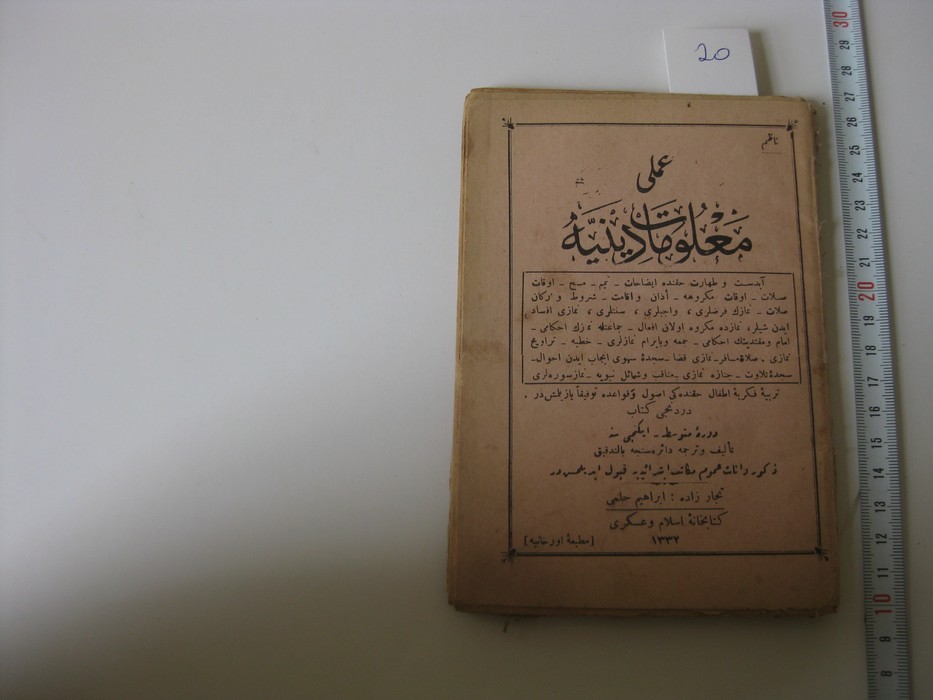 20
ناظم
عملی
معلومات دینیه
آبدست و طهارت حقنده ایضاحات - تیم - مسح - اوقات
صلات - اوقات مکروهه - أذان و اقامت - شروط و ارکان
صلات - نمازك فرضلری ، واجبلری ، سنتلری ، نمازی افساد
ایدن شیلر ، نمازده مکروه اولان افعال - جماعتله نمازك احکامی -
امام ومقتدینك احکامی - جمعه وبایرام نمازلری - خطبه - تراویح
نمازی - صلاة مسافر - نمازی قضا - سجدهٔ سهوی ایجاب ایدن احوال -
سجدهٔ تلاوت - جنازه نمازی - مناقب و شمائل نبویه - نماز سوره لری
تربیهٔ فکریهٔ اطفال حقنده کی اصول وقواعده توفیقاً یازیلمشدر .
دردنجی کتاب
دورهٔ متوسطه - ایکنجی سنه
تألیف و ترجمه دائره سنجه بالتدقیق
ذکور و اناث عموم مکاتب ابتدائیه یه قبول ایدیلمشدر
تجار زاده : ابراهیم حلمی
کتابخانهٔ اسلام وعسکری
١٣٣٢
[مطبعهٔ اورخانیه]
30
29
28
27
26
25
24
23
22
21
20
19
18
17
16
15
14
13
12
11
10
9
8